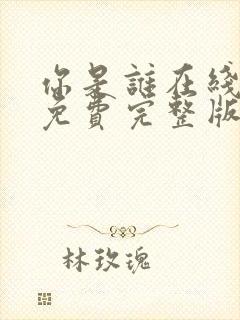 你是誰在綫
免費完整版
林玫瑰